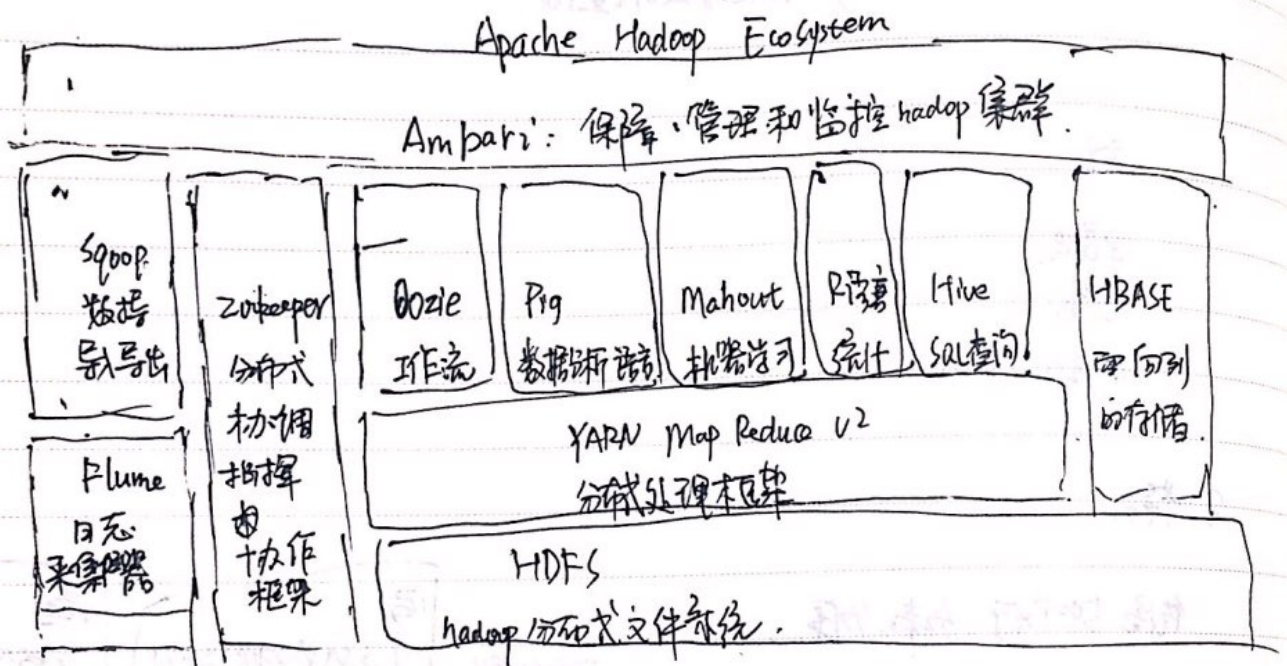 Apache Hadoop Ecosystem
Ambari：保障、管理和监控hadoop集群.
Sqoop
数据
导入导出
Zookeeper
分布式
协调
指挥
协作
框架
Oozie
工作流
Pig
数据分析语言
Mahout
机器学习
R语言
统计
Hive
SQL查询
HBASE
面向列
的存储.
Flume
日志
采集器
YARN Map Reduce v2
分布式处理框架
HDFS
hadoop分布式文件系统.